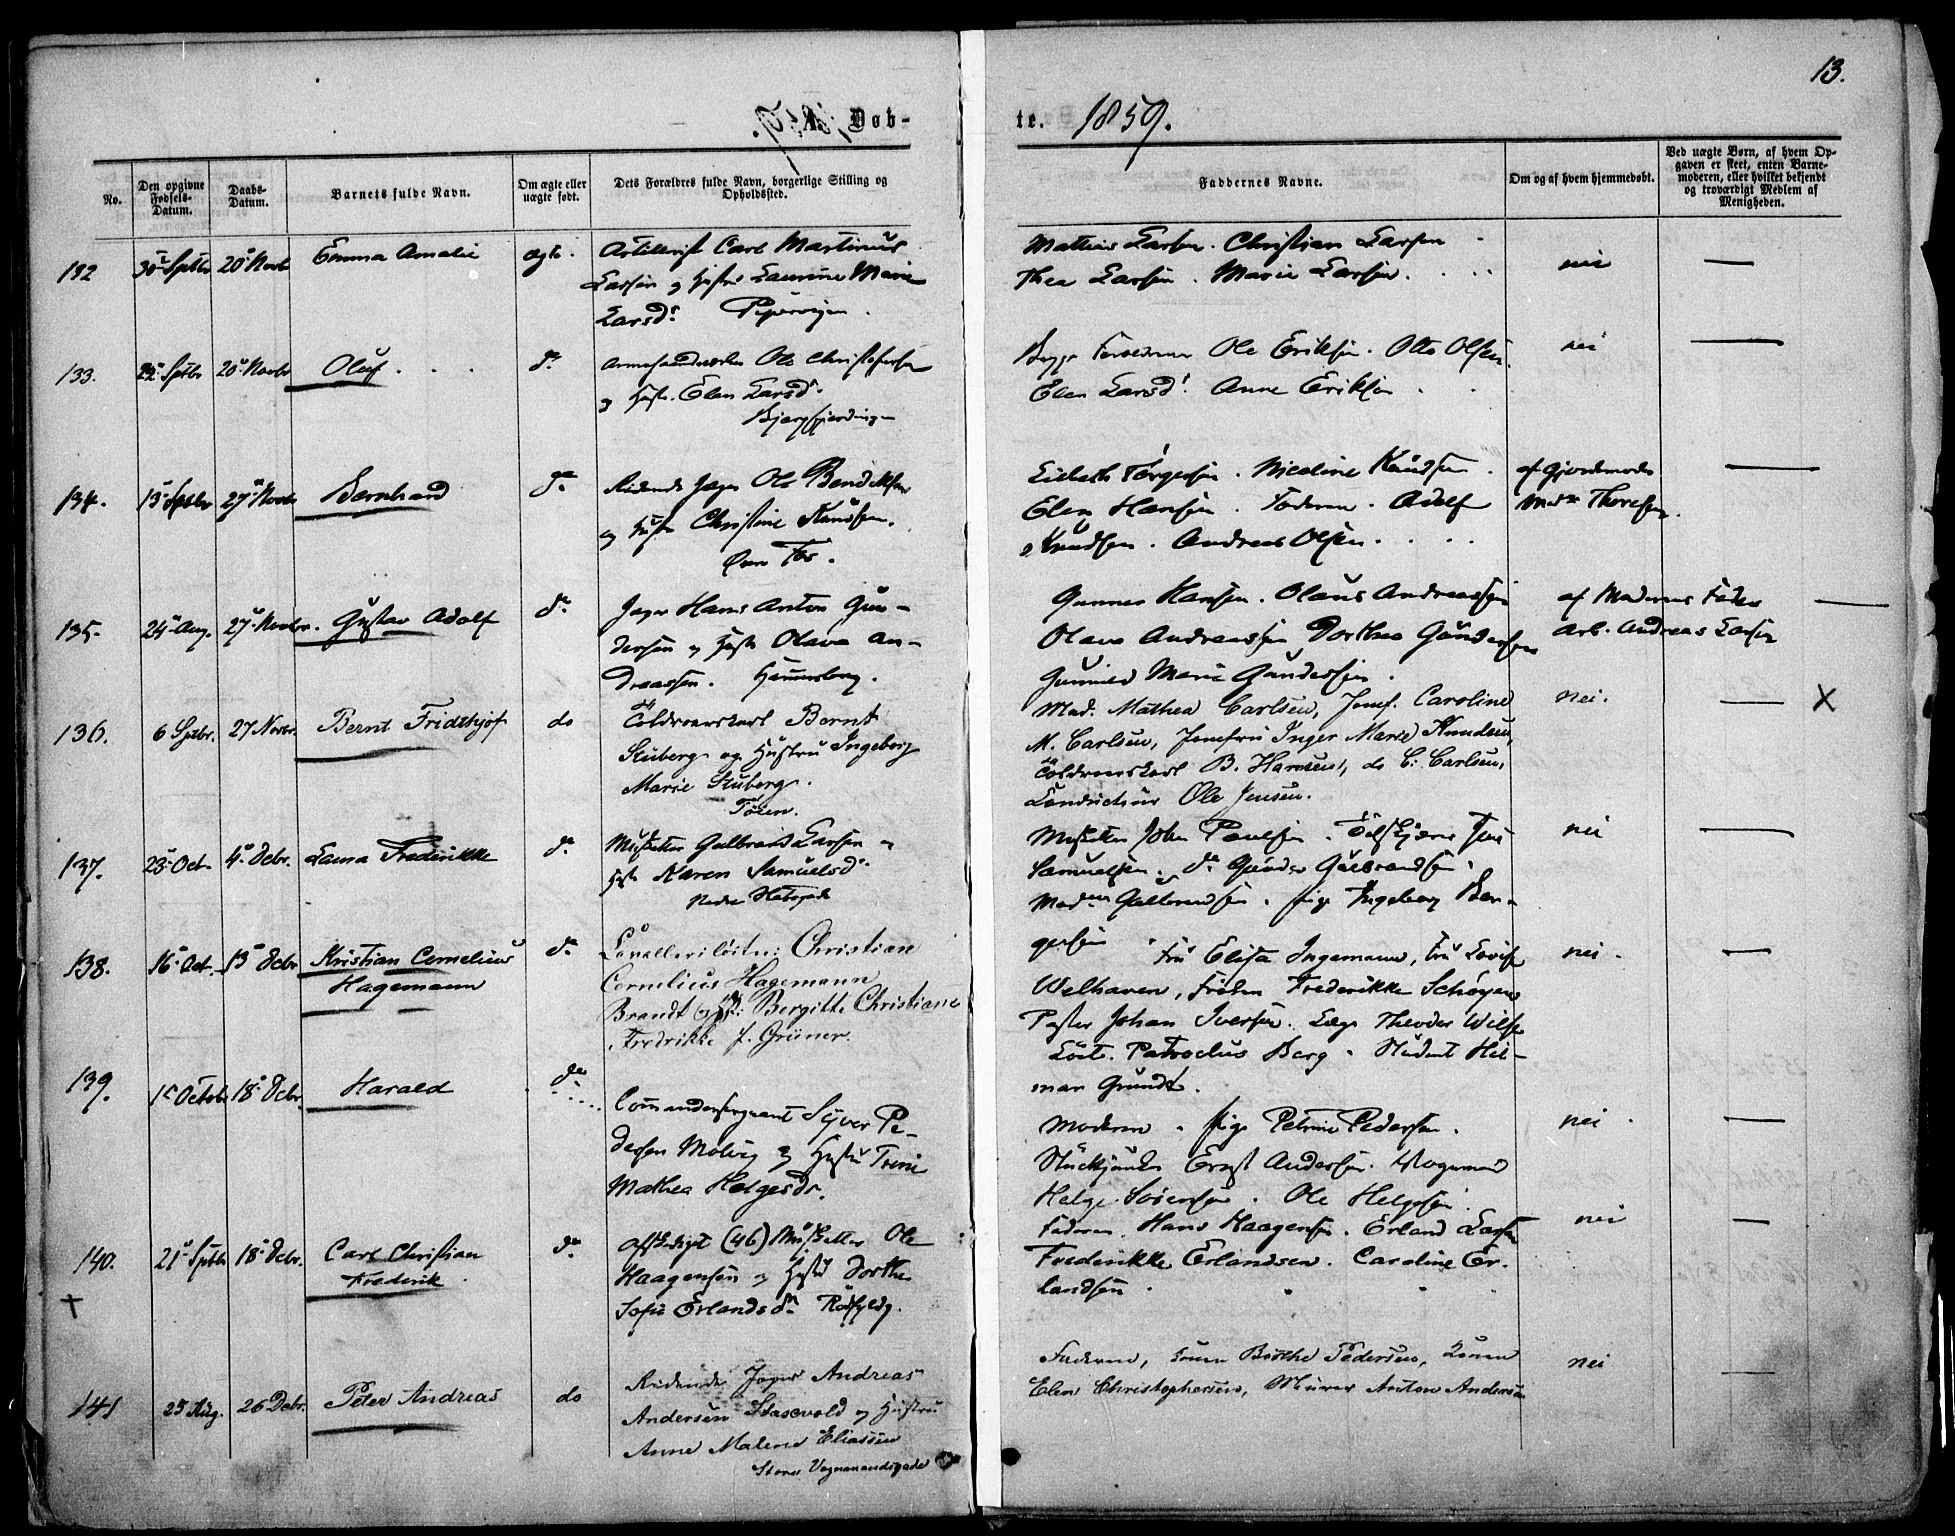 13.
A. Døb-
te. 1859.
No.
Den opgivne Fødsels-Datum.
Daabs-Datum.
Barnets fulde Navn.
Om ægte eller uægte født.
Dets Forældres fulde Navn, borgerlige Stilling og Opholdssted.
Faddernes Navne.
Om og af hvem hjemmedøbt.
Ved uægte Børn, af hvem Opgaven er skeet, enten Barnemoderen, eller hvilket bekjendt og troværdigt Medlem af Menigheden.
132 30 Sptbr 20 Novbr Emma Amalie ægte.
Artillerist Carl Martinus
Larsen og Hustru Laurine Marie
Larsd. Pipervigen.
Mathias Larsen. Christian Larsen
Thea Larsen. Marie Larsen.
nei —
133. 22 Sptbr 20 Novbr Oluf do
Ole Christophersen
og Hustr. Elen Larsd.
Bjergfjerdingen
Begge Forældrene Ole Eriksen. Otto Olsen.
Elen Larsd. Anne Eriksen
nei —
134. 13 Sptbr 27 Novbr Bernhard do
Ridende Jæger Ole Bendiksen
og Hustr Christine Knudsen.
Øvre Fos.
Lisbeth Torgersen. Nicoline Knudsen.
Elen Hansen. Faderen. Adolf
Knudsen. Andreas Olsen.
af Gjordemoder
Mad. Thoresen.
—
135. 24 Aug. 27 Novbr. Gustav Adolf do
Jæger Hans Anton Gun-
dersen og Hustr Olava An-
dreassen. Hammersborg.
Gunner Hansen. Olaus Andreassen
Olava Andreassen Dorthea Gundersen
Gunnild Marie Gundersen.
af Moderens Fader
Arb. Andreas Larsen
—
136. 6 Sptbr. 27 Novbr. Bernt Fridthjof do
Toldroerskarl Bernt
Stuberg og Hustru Ingeborg
Marie Stuberg.
Tøien.
Mad. Mathea Carlsen, Jomf. Caroline
M. Carlsen, Jomfru Inger Marie Knudsen,
Toldroerskarl B. Hansen, do C. Carlsen,
Conducteur Ole Jensen.
nei. — X
137. 23 Oct. 4 Debr. Laura Frederikke do
Musketer Gulbrand Larsen og
Hustr Karen Samuelsd.
Musketer John Paulsen. Jens
Samuelsen. do Gunder Gulbrandsen.
Mad. Gulbrandsen. Pige Ingeborg Ber-
gersen
nei —
138. 16 Oct. 13 Debr Kristian Cornelius
Hagemann do
Cavalleriløitn: Christian
Cornelius Hagemann
Brandt og Hustr: Bergitte Christiane
Fredrikke f. Grüner.
Fru Elisa Ingemann, Fru Lovise
Welhaven, Frøken Frederikke Schøyen
Pastor Johan Iversen. Læge Theodor Wilse
Løitn. Patroclus Berg. Student Hil-
mar Grundt.
nei. —
139. 1 Octobr 18 Debr. Harald do
Commandersergeant Syver Pe-
dersen Molvig og Hustru Trine
Mathea Helgesdr.
Moderen. Pige Petrine Pedersen.
Stückjunker Ernst Andersen. Vognmand
Helge Sørensen. Ole Helgesen.
nei. —
140. 21 Sptbr 18 Debr. Carl Christian
Frederik. do
†
Afskediget (46) Musketter Ole
Haagensen og Hustr Dorthe
Sofie Erlandsdr.
Faderen. Hans Haagensen. Erland Larsen
Frederikke Erlandsen. Caroline Er-
landsen.
nei —
141 25 Aug. 26 Debr. Peter Andreas do
Ridende Jæger Andreas
Andersen Stasevold og Hustru
Anne Malene Eliassen
Store Vognmandsgade
Faderen, Konen Birthe Pedersen, Konen
Elen Christophersen, Murer Anton Andersen
nei —